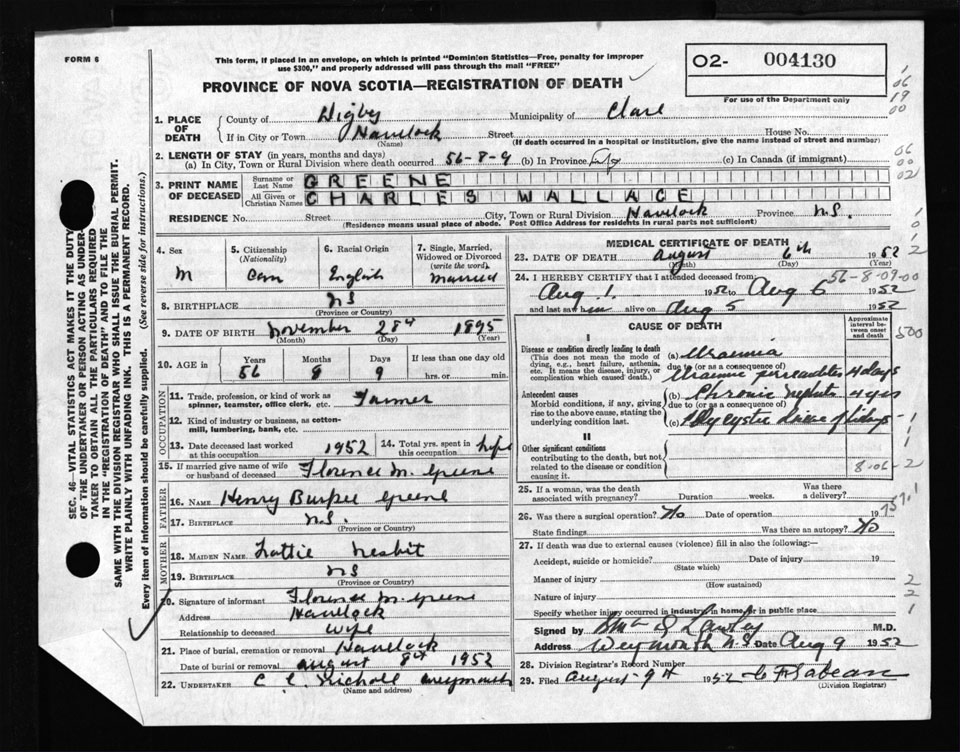 FORM 6
This form, if placed in an envelope, on which is printed "Dominion Statistics—Free, penalty for improper
use $300," and properly addressed will pass through the mail "FREE"
PROVINCE OF NOVA SCOTIA—REGISTRATION OF DEATH
O2- 004130
For use of the Department only
1. PLACE OF DEATH
County of Digby Municipality of Clare
If in City or Town Havelock Street House No.
(Name) (If death occurred in a hospital or institution, give the name instead of street and number)
2. LENGTH OF STAY (in years, months and days)
(a) In City, Town or Rural Division where death occurred 56-8-9 (b) In Province Life (c) In Canada (if immigrant)
3. PRINT NAME OF DECEASED
Surname or Last Name GREENE
All Given or Christian Names CHARLES WALLACE
RESIDENCE No. Street City, Town or Rural Division Havelock Province N.S.
(Residence means usual place of abode. Post Office Address for residents in rural parts not sufficient)
4. Sex M
5. Citizenship (Nationality) Can
6. Racial Origin English
7. Single, Married, Widowed or Divorced (write the word) Married
8. BIRTHPLACE NS
(Province or Country)
9. DATE OF BIRTH November 28th 1895
(Month) (Day) (Year)
10. AGE in Years Months Days If less than one day old
56 8 9 hrs. or min.
OCCUPATION
11. Trade, profession, or kind of work as spinner, teamster, office clerk, etc. Farmer
12. Kind of industry or business, as cotton-mill, lumbering, bank, etc.
13. Date deceased last worked at this occupation 1952
14. Total yrs. spent in this occupation life
15. If married give name of wife or husband of deceased Florence M. Greene
FATHER
16. NAME Henry Burpee Greene
17. BIRTHPLACE N.S.
(Province or Country)
MOTHER
18. MAIDEN NAME Lattie Nesbit
19. BIRTHPLACE NS
(Province or Country)
20. Signature of informant Florence M. Greene
Address Havelock
Relationship to deceased Wife
21. Place of burial, cremation or removal Havelock
Date of burial or removal August 8th 1952
22. UNDERTAKER C. L. Nicholl Weymouth
(Name and address)
MEDICAL CERTIFICATE OF DEATH
23. DATE OF DEATH August 6th 1952
(Month) (Day) (Year)
24. I HEREBY CERTIFY that I attended deceased from:
56-8-09-00
Aug 1. 1952 to Aug 6 1952
and last saw him alive on Aug 5 1952
CAUSE OF DEATH
Approximate interval between onset and death
I
Disease or condition directly leading to death
(This does not mean the mode of dying, e.g., heart failure, asthenia, etc. It means the disease, injury, or complication which caused death.)
(a) Uraemia
due to (or as a consequence of)
Uraemic 4 days
Antecedent causes
Morbid conditions, if any, giving rise to the above cause, stating the underlying condition last.
(b) Chronic nephritis 4 yrs
due to (or as a consequence of)
(c) Polycystic disease of kidneys
II
Other significant conditions
contributing to the death, but not related to the disease or condition causing it.
8-06-2
25. If a woman, was the death associated with pregnancy? Duration weeks. Was there a delivery?
26. Was there a surgical operation? No Date of operation 19
State findings Was there an autopsy? No
27. If death was due to external causes (violence) fill in also the following:—
Accident, suicide or homicide? Date of injury 19
(State which)
Manner of injury
(How sustained)
Nature of injury
Specify whether injury occurred in industry, in home, or in public place
Signed by M.D.
Address Weymouth N.S. Date Aug 9 1952
28. Division Registrar's Record Number
29. Filed August 9th 1952
(Division Registrar)
SEC. 46—VITAL STATISTICS ACT MAKES IT THE DUTY
OF THE UNDERTAKER OR PERSON ACTING AS UNDER-
TAKER TO OBTAIN ALL THE PARTICULARS REQUIRED
IN THE "REGISTRATION OF DEATH" AND TO FILE THE
SAME WITH THE DIVISION REGISTRAR WHO SHALL ISSUE THE BURIAL PERMIT.
WRITE PLAINLY WITH UNFADING INK. THIS IS A PERMANENT RECORD.
Every item of information should be carefully supplied. (See reverse side for instructions.)